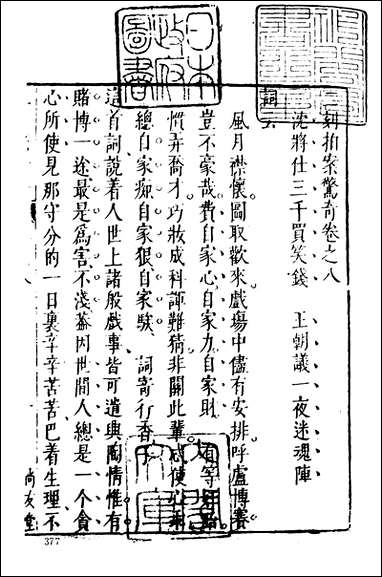 刻拍案驚奇卷之八
沈將仕三千買笑錢 王朝議一夜迷魂陣
詞云
風月襟懷圖取歡來戲塲中儘有安排呼盧博賽
豈不豪哉費自家心自家力自家財 有等奸胎
慣弄喬才巧妝成科諢難猜非關此輩忒使心乖
總自家癡自家狠自家騃 詞寄行香子
這首詞說着人世上諸般戲事皆可遣興陶情惟有
賭博一途最是爲害不淺蓋因世間人總是一個貪
心所使見那守分的一日裏辛辛苦苦巴着生理不
尚友堂
日本政府圖書
文庫
377